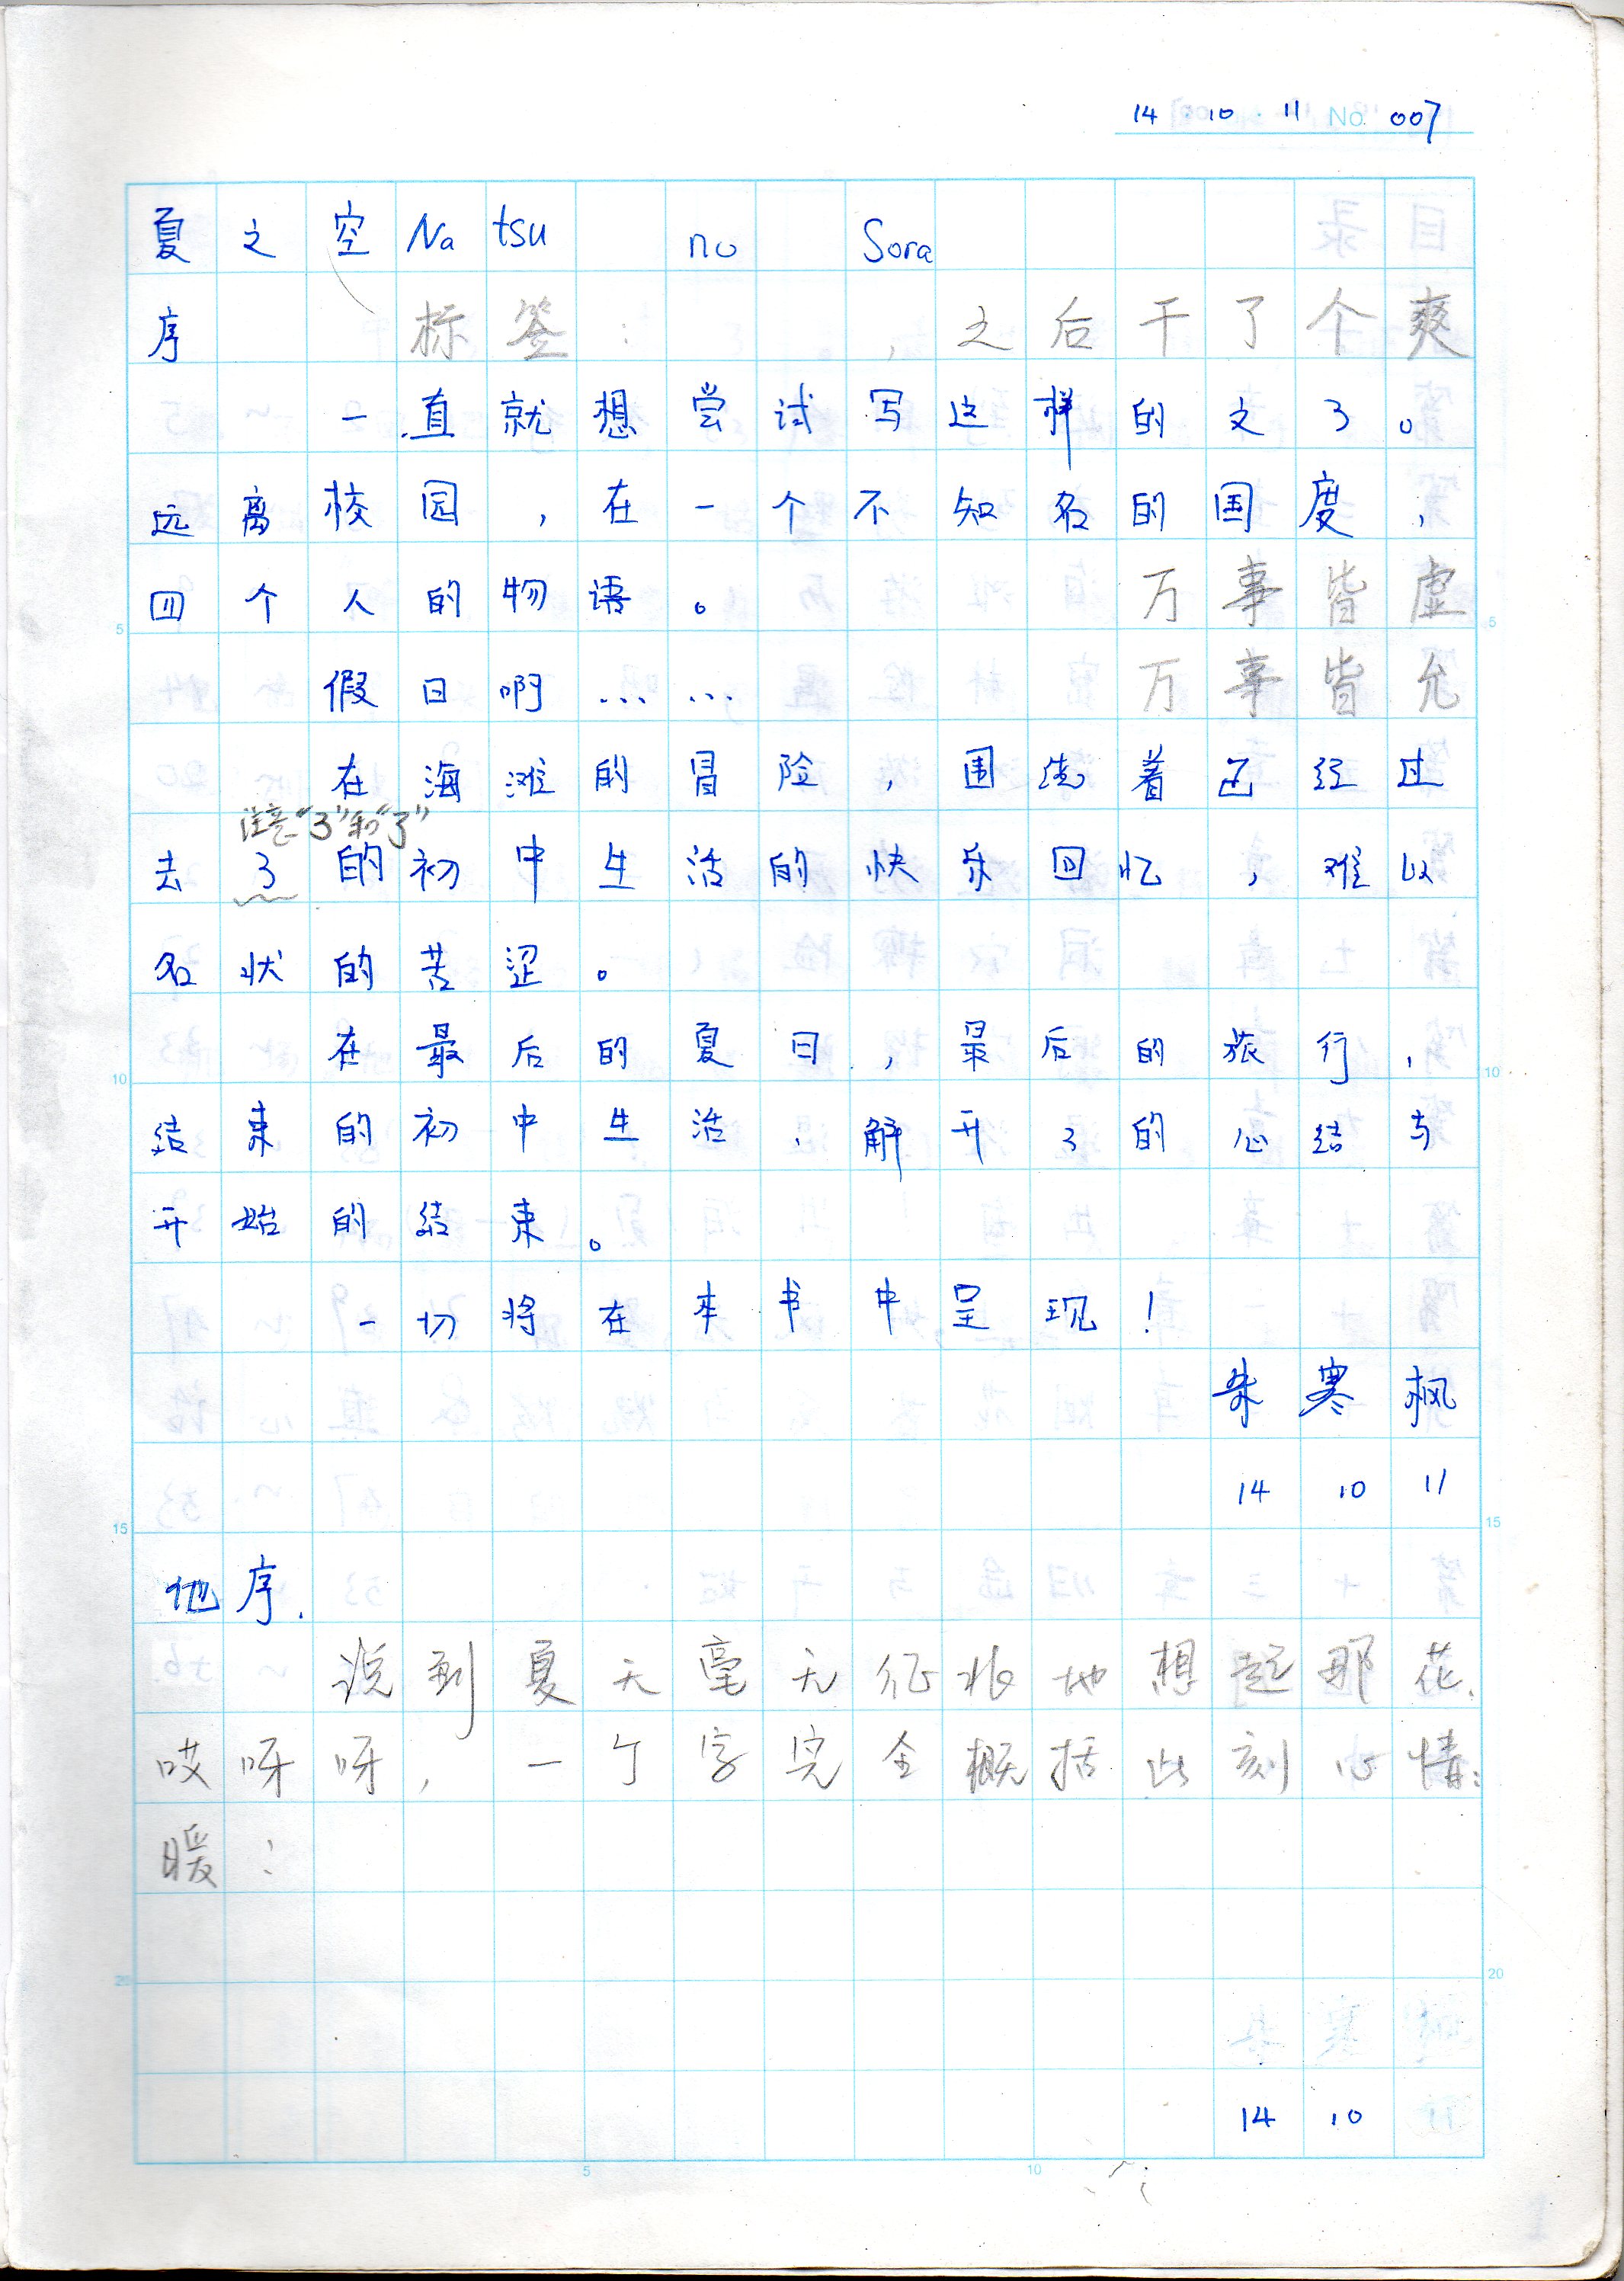 14 · 10 · 11 No 007
夏之空 Natsu no Sora
序 标签: , 之后干了个爽
一直就想尝试写这样的文了。
远离校园,在一个不知名的国度,
四个人的物语。 万事皆虚
假日啊…… 万事皆允
在海滩的冒险,围绕着已经过
注意“3”和“了”
去3的初中生活的快乐回忆,难以
名状的苦涩。
在最后的夏日,最后的旅行,
结束的初中生活,解开了的心结与
开始的结束。
一切将在本书中呈现!
朱寒枫
14 10 11
他序.
说到夏天毫无征兆地想起那花.
哎呀呀,一个字完全概括此刻心情:
暖:
14 10